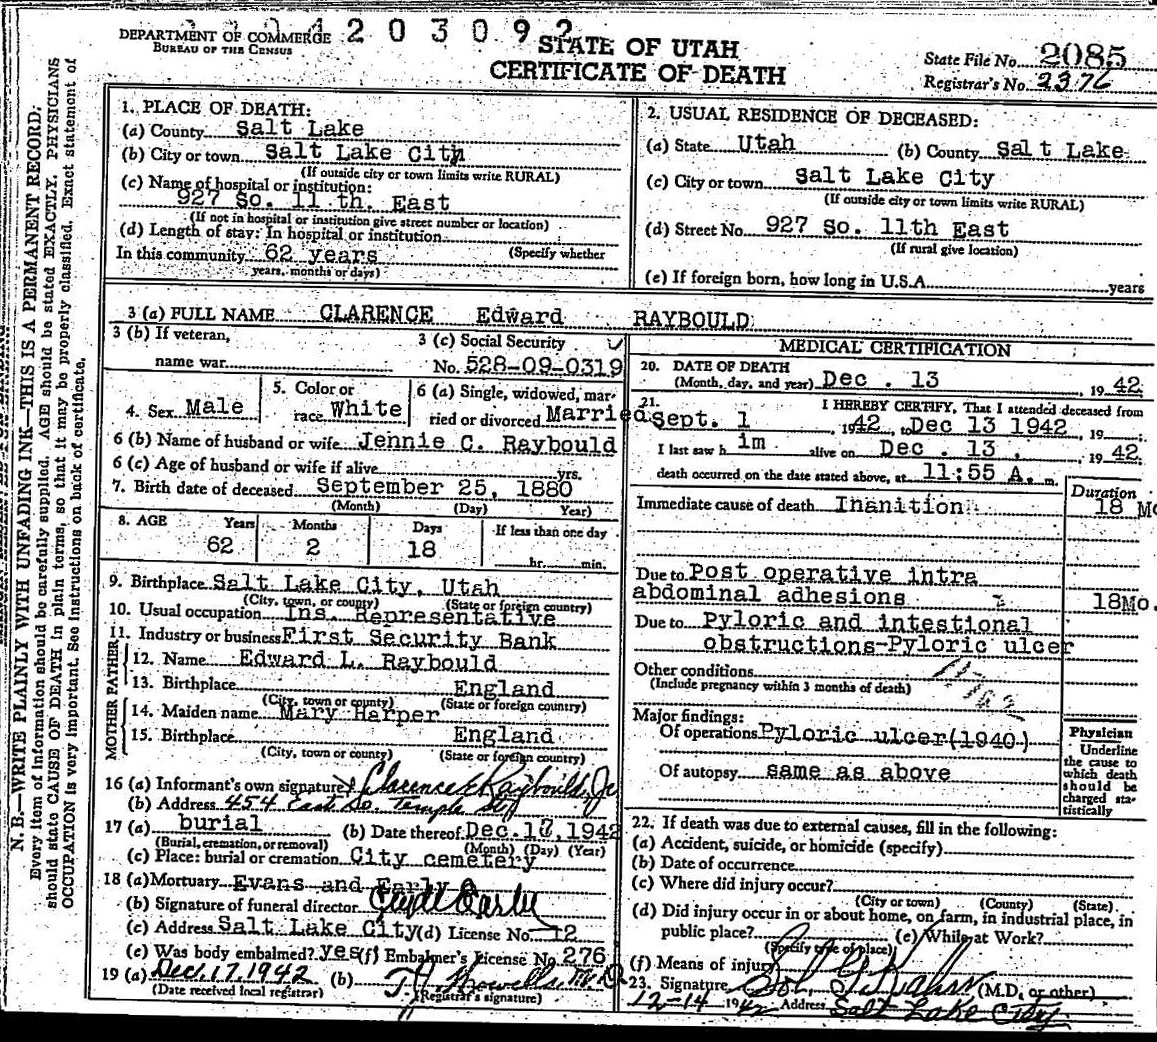 4 2 0 3 0 9 2
DEPARTMENT OF COMMERCE
BUREAU OF THE CENSUS
STATE OF UTAH
CERTIFICATE OF DEATH
State File No. 2085
Registrar's No. 2376
N. B.—WRITE PLAINLY WITH UNFADING INK—THIS IS A PERMANENT RECORD.
Every item of information should be carefully supplied. AGE should be stated EXACTLY. PHYSICIANS
should state CAUSE OF DEATH in plain terms, so that it may be properly classified. Exact statement of
OCCUPATION is very important. See instructions on back of certificate.
1. PLACE OF DEATH:
(a) County Salt Lake
(b) City or town Salt Lake City
(If outside city or town limits write RURAL)
(c) Name of hospital or institution:
927 So. 11 th. East
(If not in hospital or institution give street number or location)
(d) Length of stay: In hospital or institution
In this community 62 years (Specify whether
years, months or days)
2. USUAL RESIDENCE OF DECEASED:
(a) State Utah (b) County Salt Lake
(c) City or town Salt Lake City
(If outside city or town limits write RURAL)
(d) Street No. 927 So. 11th East
(If rural give location)
(e) If foreign born, how long in U.S.A. years
3 (a) FULL NAME CLARENCE Edward RAYBOULD
3 (b) If veteran,
name war
3 (c) Social Security
No. 528-09-0319
4. Sex Male
5. Color or
race White
6 (a) Single, widowed, mar-
ried or divorced Married
6 (b) Name of husband or wife Jennie C. Raybould
6 (c) Age of husband or wife if alive yrs.
7. Birth date of deceased September 25, 1880
(Month) (Day) Year)
8. AGE Years Months Days If less than one day
62 2 18
hr. min.
9. Birthplace Salt Lake City, Utah
(City, town, or county) (State or foreign country)
10. Usual occupation Ins. Representative
11. Industry or business First Security Bank
FATHER
12. Name Edward L. Raybould
13. Birthplace England
(City, town or county) (State or foreign country)
MOTHER
14. Maiden name Mary Harper
15. Birthplace England
(City, town or county) (State or foreign country)
16 (a) Informant's own signature Clarence E Raybould, Jr
(b) Address 454 East So. Temple St
17 (a) burial (b) Date thereof Dec. 17, 1942
(Burial, cremation, or removal) (Month) (Day) (Year)
(c) Place: burial or cremation City cemetery
18 (a) Mortuary Evans and Early
(b) Signature of funeral director Clyde Early
(c) Address Salt Lake City (d) License No. 12
(e) Was body embalmed? yes (f) Embalmer's License No. 276
19 (a) Dec. 17. 1942 (b) Howells, M.D.
(Date received local registrar) (Registrar's signature)
MEDICAL CERTIFICATION
20. DATE OF DEATH
(Month, day, and year) Dec. 13 19 42
21. I HEREBY CERTIFY, That I attended deceased from
Sept. 1 , 1942, to Dec 13 1942, 19
I last saw h im alive on Dec. 13, 19 42
death occurred on the date stated above, at 11:55 A. m.
Duration
Immediate cause of death Inanition 18 Mo
Due to Post operative intra
abdominal adhesions 18Mo.
Due to Pyloric and intestional
obstructions-Pyloric ulcer
Other conditions
(Include pregnancy within 3 months of death)
Major findings:
Of operations Pyloric ulcer(1940)
Of autopsy same as above
Physician
Underline
the cause to
which death
should be
charged sta-
tistically
22. If death was due to external causes, fill in the following:
(a) Accident, suicide, or homicide (specify)
(b) Date of occurrence
(c) Where did injury occur?
(City or town) (County) (State)
(d) Did injury occur in or about home, on farm, in industrial place, in
public place? (e) While at Work?
(Specify type of place)
(f) Means of injury
23. Signature Sol G Kahn (M.D. or other)
12-14 1942 Address Salt Lake City